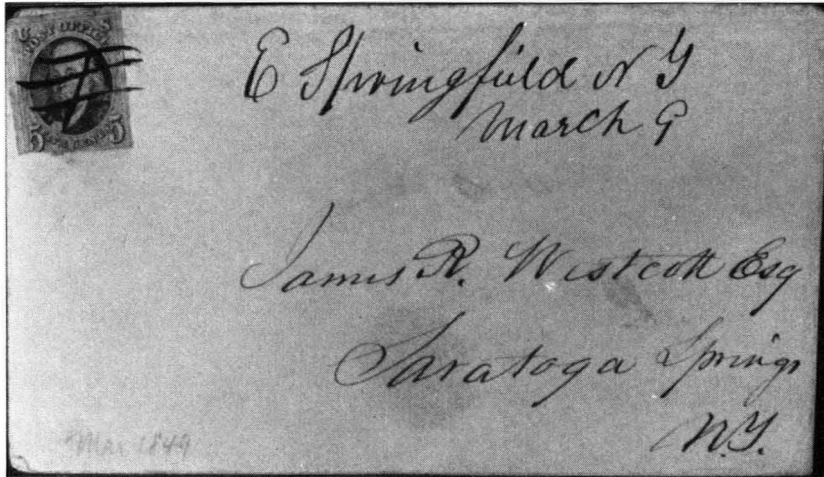 POST OFFICE
5 FIVE CENTS 5
E Springfield N Y
March 9
James R. Westcott Esq
Saratoga Springs
N.Y.
Mar 1849